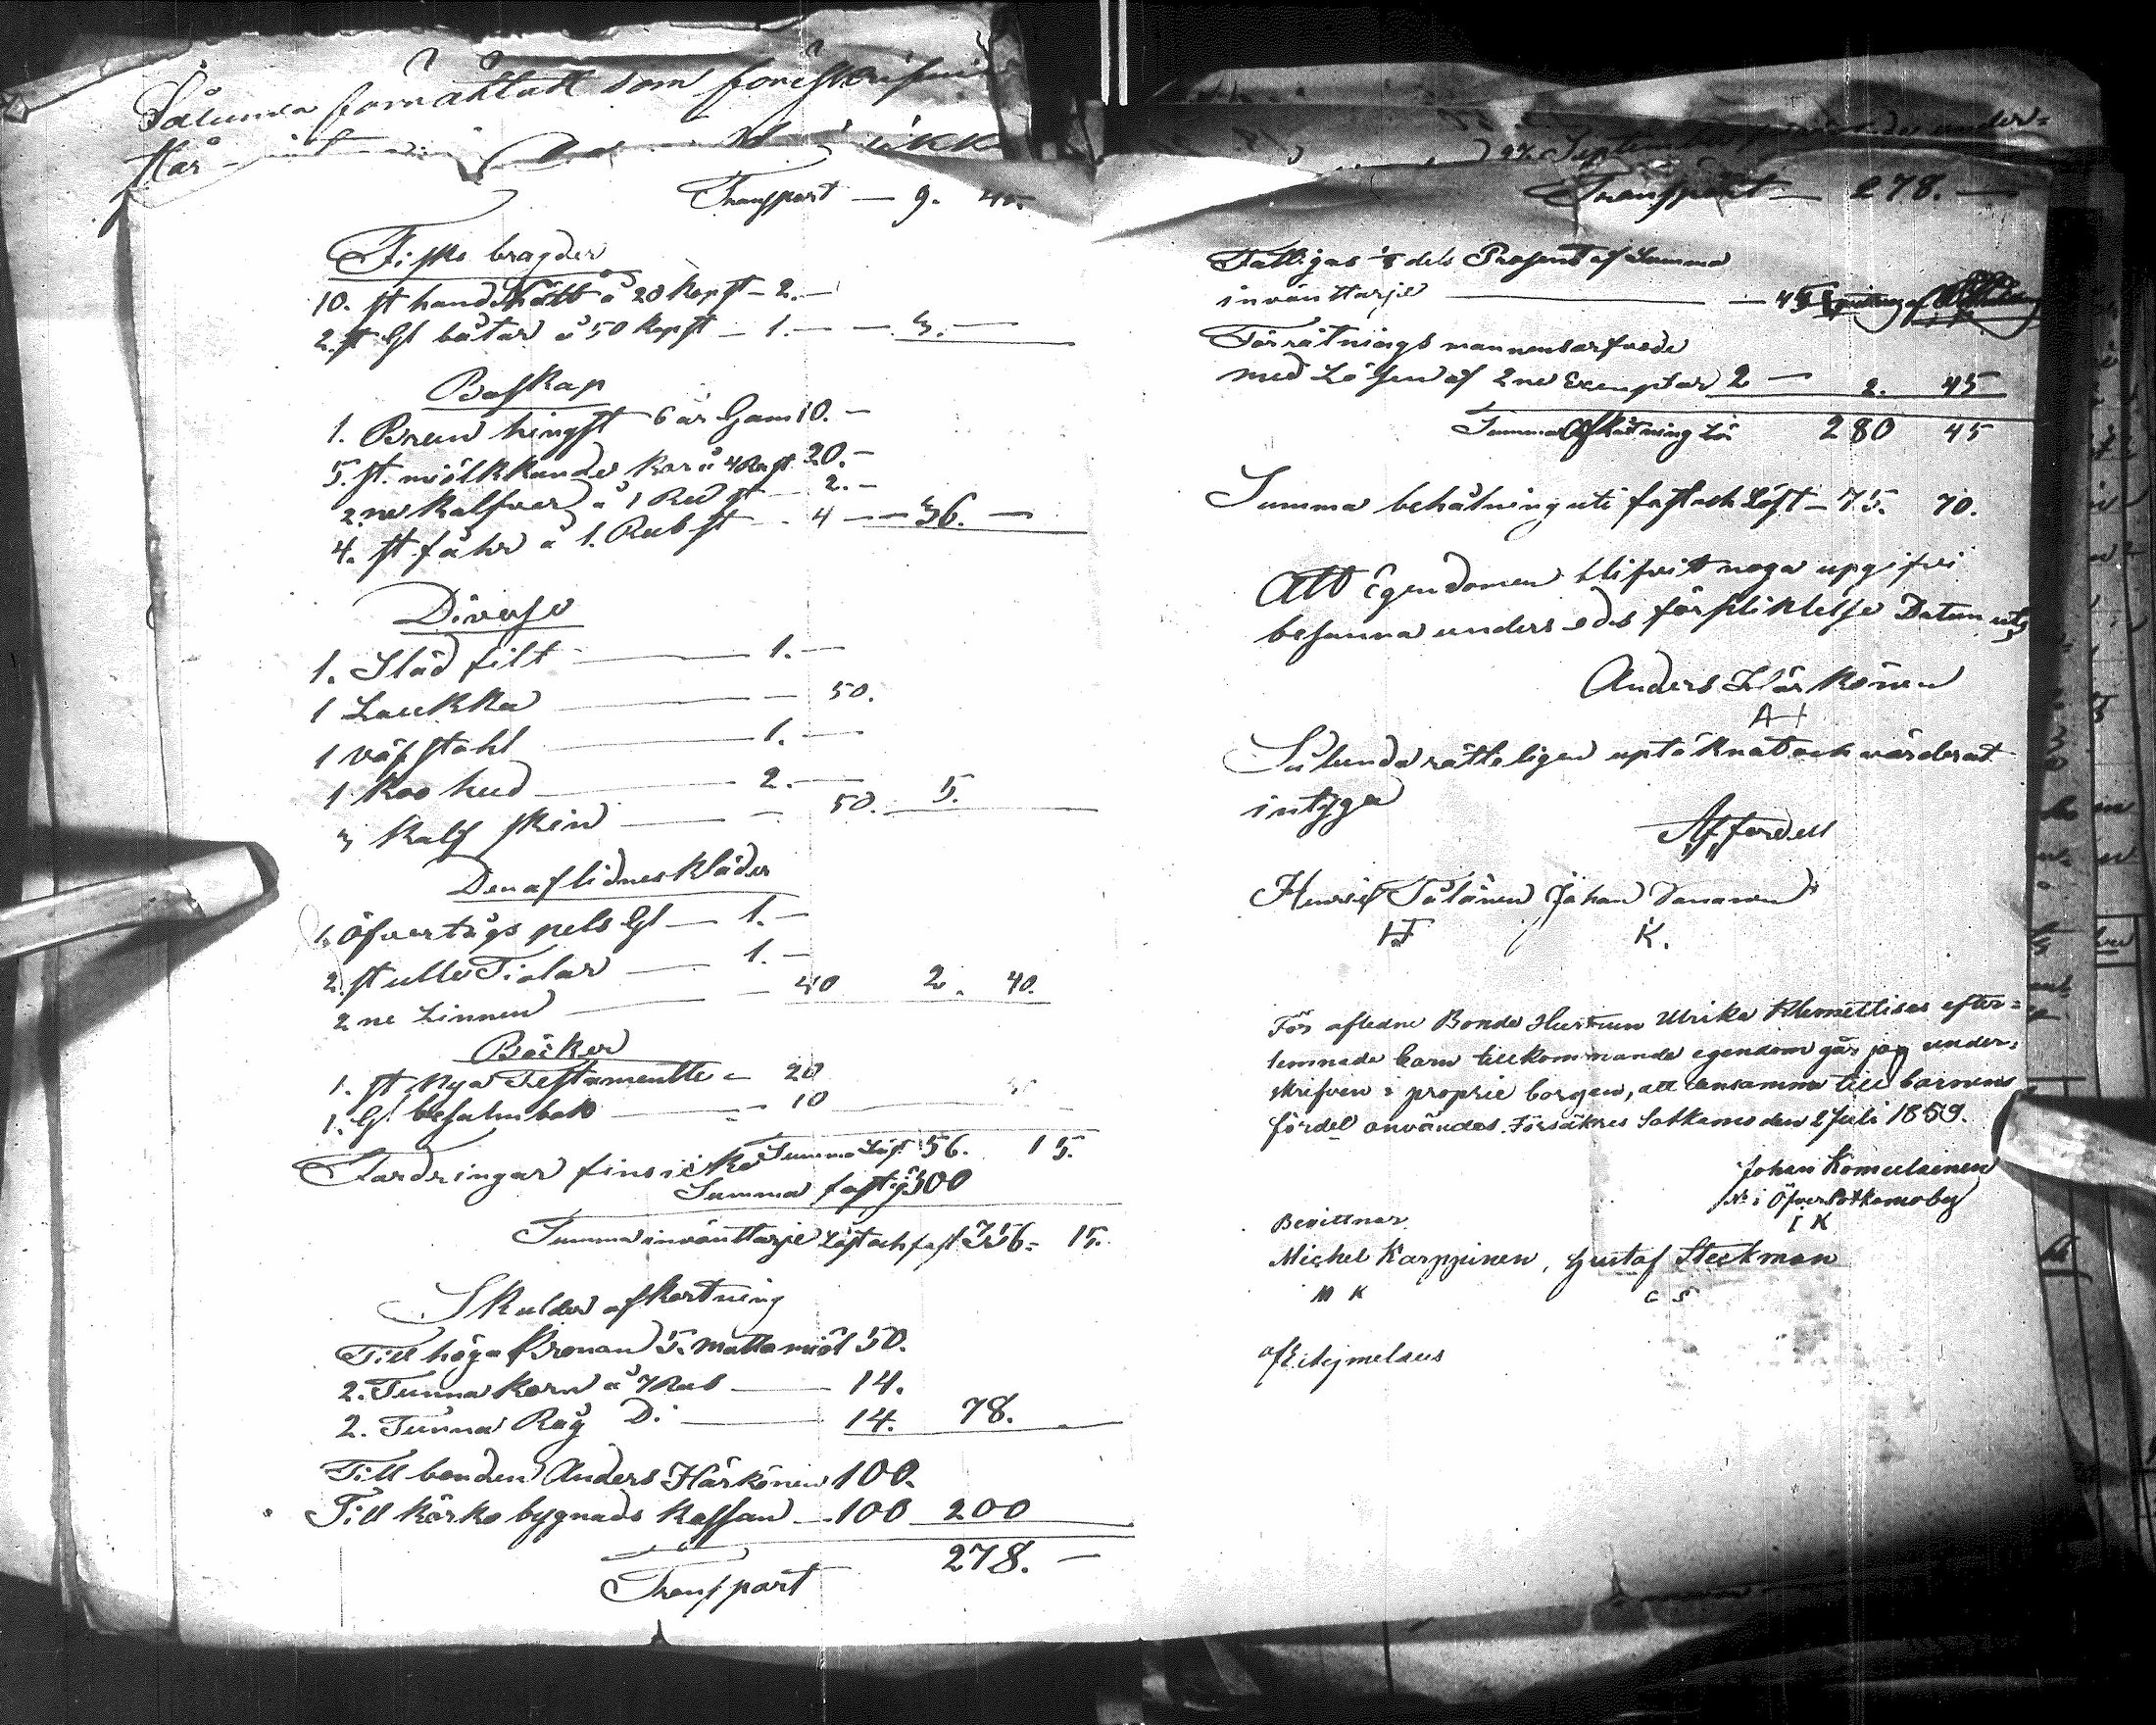 Sålunda förrättat som föreskrifvi
Här
Transport — 9. 40.
Fiske bragder
10. st hand Nätt à 20 Kop st – 2. —
2. st Gl båtar à 50 Kop st — 1. — — 3. —
Boskap
1. Brun hingst 6 år Gam 10. —
5. st. miölkkande Kor à 4 Ru st 20. —
2 ne Kalfvar à 1 Ru st — 2. —
4. st fåhr à 1. Rub st — 4 — — 36. —
Diverse
1. Släd filt — 1. —
1 Laukka — 50.
1 väfstohl — 1. —
1 Koo hud — 2. —
3 Kalf skin — 50. 5.
Den aflidnes Kläder
1. Öfvertygs pels Gl — 1. —
2. st ulle Tiolar — 1. —
2 ne Linnen — 40 2. 40.
Böcker
1. st Nya Testamentte — 20
1. Gl besalmbok — 10
Fordringar fins icke Summa Löst 56. 15.
Summa fastig 300
Summa invänttarje Löst och fast 356 = 15.
Skulder afkortning
Till höga Kronan 5. matto miöl 50.
2. Tunna Korn à 7 Rub — 14.
2. Tunna Råg D:o — 14. 78.
Till bonden Anders Härkönen 100.
Till Körko bygnads Kassan — 100 200
278. —
Transport
September under=
Transport — 278. —
Fattigas 1/8 dels Prosent af Summa
invänttarje — 45
Förrätnings mannens arfvode
med Lösen af 2 ne Exemplar 2 — 2. 45
Summa Afkortning 280 45
Summa behålning uti fast och Löst — 75. 70.
Att Egendomen blifvit noga upgifvi
besanna under eds förpliktelse Datum uts
Anders Härkönen
A H
Sålunda rätteligen uptäknat och värderat
intyga
Af fordell
Henrik Tolänen Johan
HT K.
För aflidne Bonde Hustrun Ulrika Klemettisas efter=
lemnade barn tillkommande egendom går jag under=
skrifven i proprie borgen, att densamma till barnens
fördel användes. Försäkres Sotkamo den 2 Juli 1859.
Johan Komulainen
No 1 Öfver Sotkamo by
I K
Bevittnar
Michel Karppinen, Gustaf Steckman
M K G S